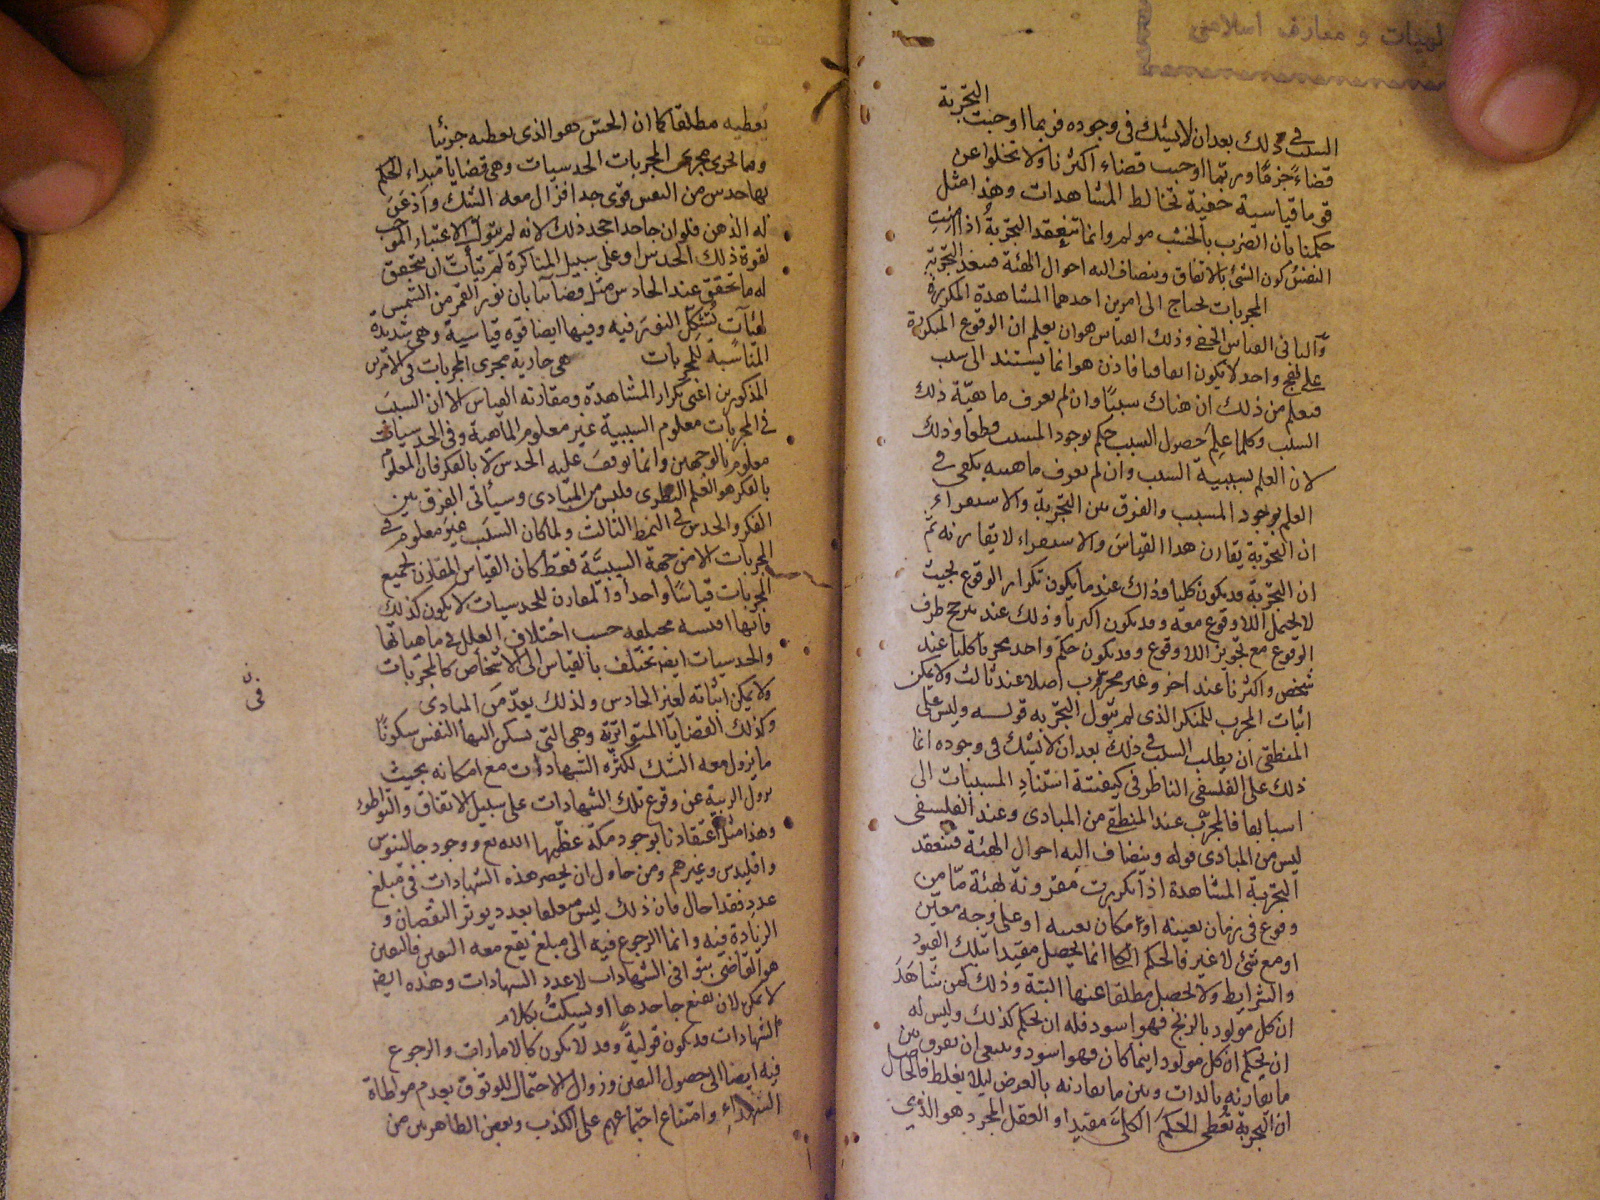 لهيات و معارف اسلامى
السبب فى ذلك بعد ان لا يشك فى وجوده فربما اوجبت التجربة
قضاء جزما وربما اوجب قضاء اكثرنا ولا تخلوا عن
قوة ما قياسية خفية تخالط المشاهدات وهذا مثل
حكمنا بان الضرب بالخشب مولم وانما تنعقد التجربة اذا امنت
النفس كون الشئ بالاتفاق وينضاف اليه احوال الهيئة فينعقد التجربة
المجربات تحتاج الى امرين احدهما المشاهدة المكررة
والثانى القياس الخفى وذلك القياس هو ان يعلم ان الوقوع المتكررة
على نهج واحد لا يكون اتفاقيا فاذن هو انما يستند الى سبب
فيعلم من ذلك ان هناك سببا وان لم يعرف ماهية ذلك
السبب وكلما علم حصول السبب حكم بوجود المسبب قطعا وذلك
لان العلم بسببية السبب وان لم يعرف ماهيته يكفى فى
العلم بوجود المسبب والفرق بين التجربة والاستقراء
ان التجربة يقارن هذا القياس والاستقراء لا يقارنه ثم
ان التجربة قد يكون كليا وذاك عند ما يكون تكرار الوقوع بحيث
لا يحتمل اللا وقوع معه وقد يكون اكثريا وذلك عند ترجح طرف
الوقوع مع تجويز اللا وقوع وقد يكون حكم واحد مجربا كليا عند
شخص واكثرنا عند اخر وغير مجرب اصلا عند ثالث ولا يمكن
اثبات المجرب للمنكر الذى لم يتول التجربه قوله وليس على
المنطقى ان يطلب السبب فى ذلك بعد ان لا يشك فى وجوده انما
ذلك على الفلسفى الناظر فى كيفية استناد المسببات الى
اسبابها فالمجرب عند المنطقى من المبادى وعند الفلسفى
ليس من المبادى قوله وينضاف اليه احوال الهيئة فتنعقد
التجربة المشاهدة اذا تكررت مقرونة لهيئة ما من
وقوع فى زمان بعينه او مكان بعينه او على وجه معين
او مع شئ لا غير فالحكم الكلى انما يحصل مقيدا بتلك القيود
والشرايط ولا يحصل مطلقا عنها البتة وذلك كمن شاهد
ان كل مولود بالزنج فهو اسود فله ان يحكم كذلك وليس له
ان يحكم ان كل مولود اينما كان فهو اسود وينبغى ان يعرف بين
ما يقارنه بالذات وبين ما يقارنه بالعرض ليلا يغلط فالحاصل
ان التجربة تعطى الحكم الكلى مقيدا والعقل المجرد هو الذى
يعطيه مطلقا كما ان الحس هو الذى يعطيه جزئيا
ومما يجرى مجرى المجربات الحدسيات وهى قضايا مبداء الحكم
بها حدس من النفس قوى جدا فزال معه الشك واذعن
له الذهن فلو ان جاحدا جحد ذلك لانه لم يتول الاعتبار الموجب
لقوة ذلك الحدس او على سبيل المناكرة لم يتأت ان يتحقق
له ما تحقق عند الحادس مثل قضائنا بان نور القمر من الشمس
لهيآت تشكل النور فيه وفيها ايضا قوة قياسية وهى شديدة
المناسبة للمجربات هى جارية مجرى المجربات فى الامرين
المذكورين اعنى تكرار المشاهدة ومقارنة القياس الا ان السبب
فى المجربات معلوم السببية غير معلوم الماهية وفى الحدسيات
معلوم بالوجهين وانما توقف عليه الحدس لا بالفكر فان المعلوم
بالفكر هو العلم النظرى فليس من المبادى وسيأتى الفرق بين
الفكر والحدس فى النمط الثالث ولما كان السبب غير معلوم فى
المجربات الا من جهة السببية فقط كان القياس المقارن لجميع
المجربات قياسا واحدا والمقارن للحدسيات لا يكون كذلك
فانها اقيسه مختلفه حسب اختلاف العلل فى ماهياتها
والحدسيات ايضا تختلف بالقياس الى الاشخاص كالمجربات
ولا يمكن اثباته لغير الحادس ولذلك يعد من المبادى
وكذلك القضايا المتواترة وهى التى تسكن اليها النفس سكونا
ما يزول معه الشك لكثرة الشهادات مع امكانه بحيث
يزول الريبة عن وقوع تلك الشهادات على سبيل الاتفاق والتواطوء
وهذا مثل اعتقادنا بوجود مكة عظمها الله تع ووجود جالينوس
واقليدس وغيرهم ومن حاول ان يحصر هذه الشهادات فى مبلغ
عدد فقد احال فان ذلك ليس معلقا بعدد يوثر النقصان و
الزيادة فيه وانما الرجوع فيه الى مبلغ يقع معه اليقين فاليقين
هو القاضى بتوافى الشهادات لا عدد الشهادات وهذه ايضا
لا يمكن ان يقنع جاحدها او يسكت بكلام
الشهادات قد يكون قولية وقد لا يكون كالامارات والرجوع
فيه ايضا الى حصول اليقين وزوال الاحتمال للوثوق بعدم مواطاة
الشهداء وامتناع اجتماعهم على الكذب وبعض الظاهريين من
فى